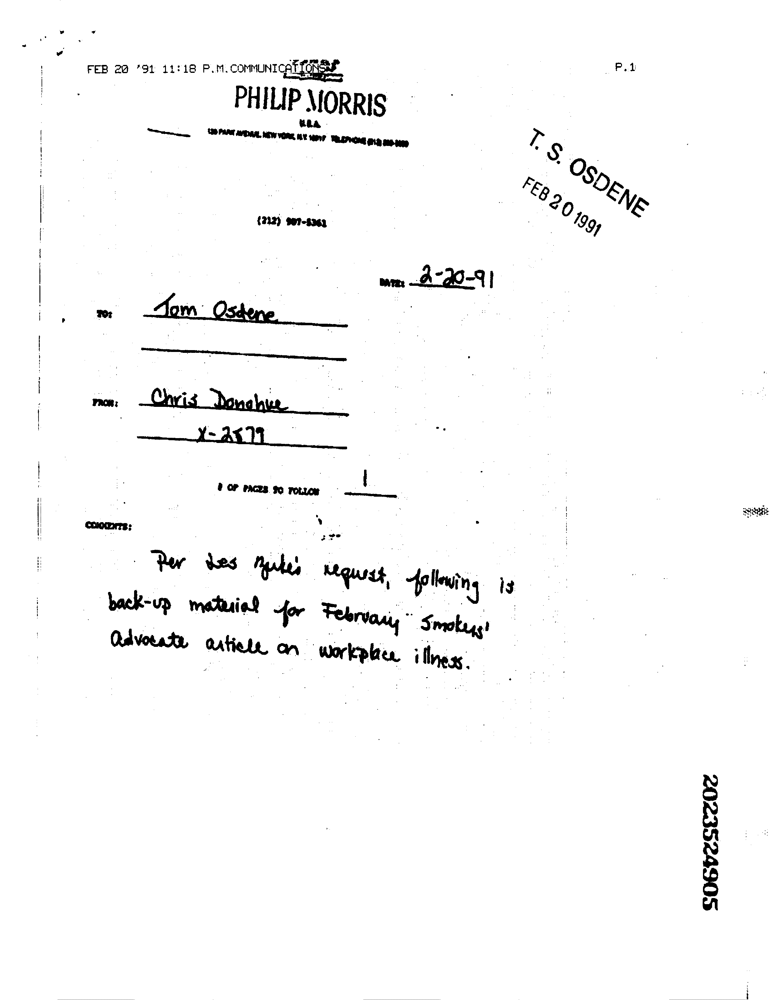 FEB 20 '91 11:18 P.M.COMMUNICATIONS P.1
PHILIP MORRIS
U.S.A.
120 PARK AVENUE, NEW YORK, N.Y. 10017 TELEPHONE (212)
T. S. OSDENE
FEB 20 1991
(212) 907-5361
DATE: 2-20-91
TO: Tom Osdene
FROM: Chris Donahue
X-2579
# OF PAGES TO FOLLOW 1
COMMENTS:
Per Les request, following is
back-up material for February Smokers'
Advocate article on workplace illness.
2023524905